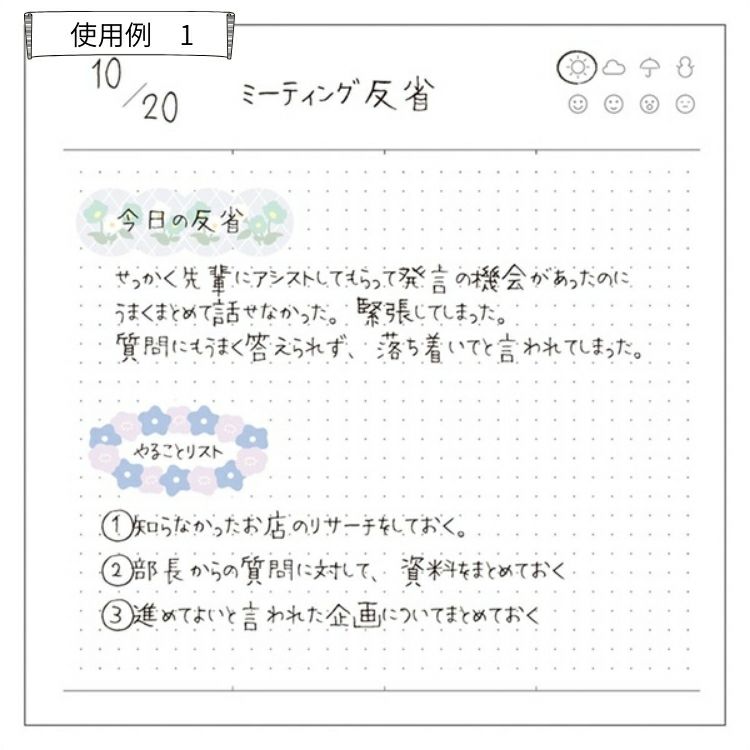 使用例　1
10/20
ミーティング反省
今日の反省
せっかく先輩にアシストしてもらって発言の機会があったのに
うまくまとめて話せなかった。緊張してしまった。
質問にもうまく答えられず、落ち着いてと言われてしまった。
やることリスト
①知らなかったお店のリサーチをしておく。
②部長からの質問に対して、資料をまとめておく
③進めてよいと言われた企画についてまとめておく